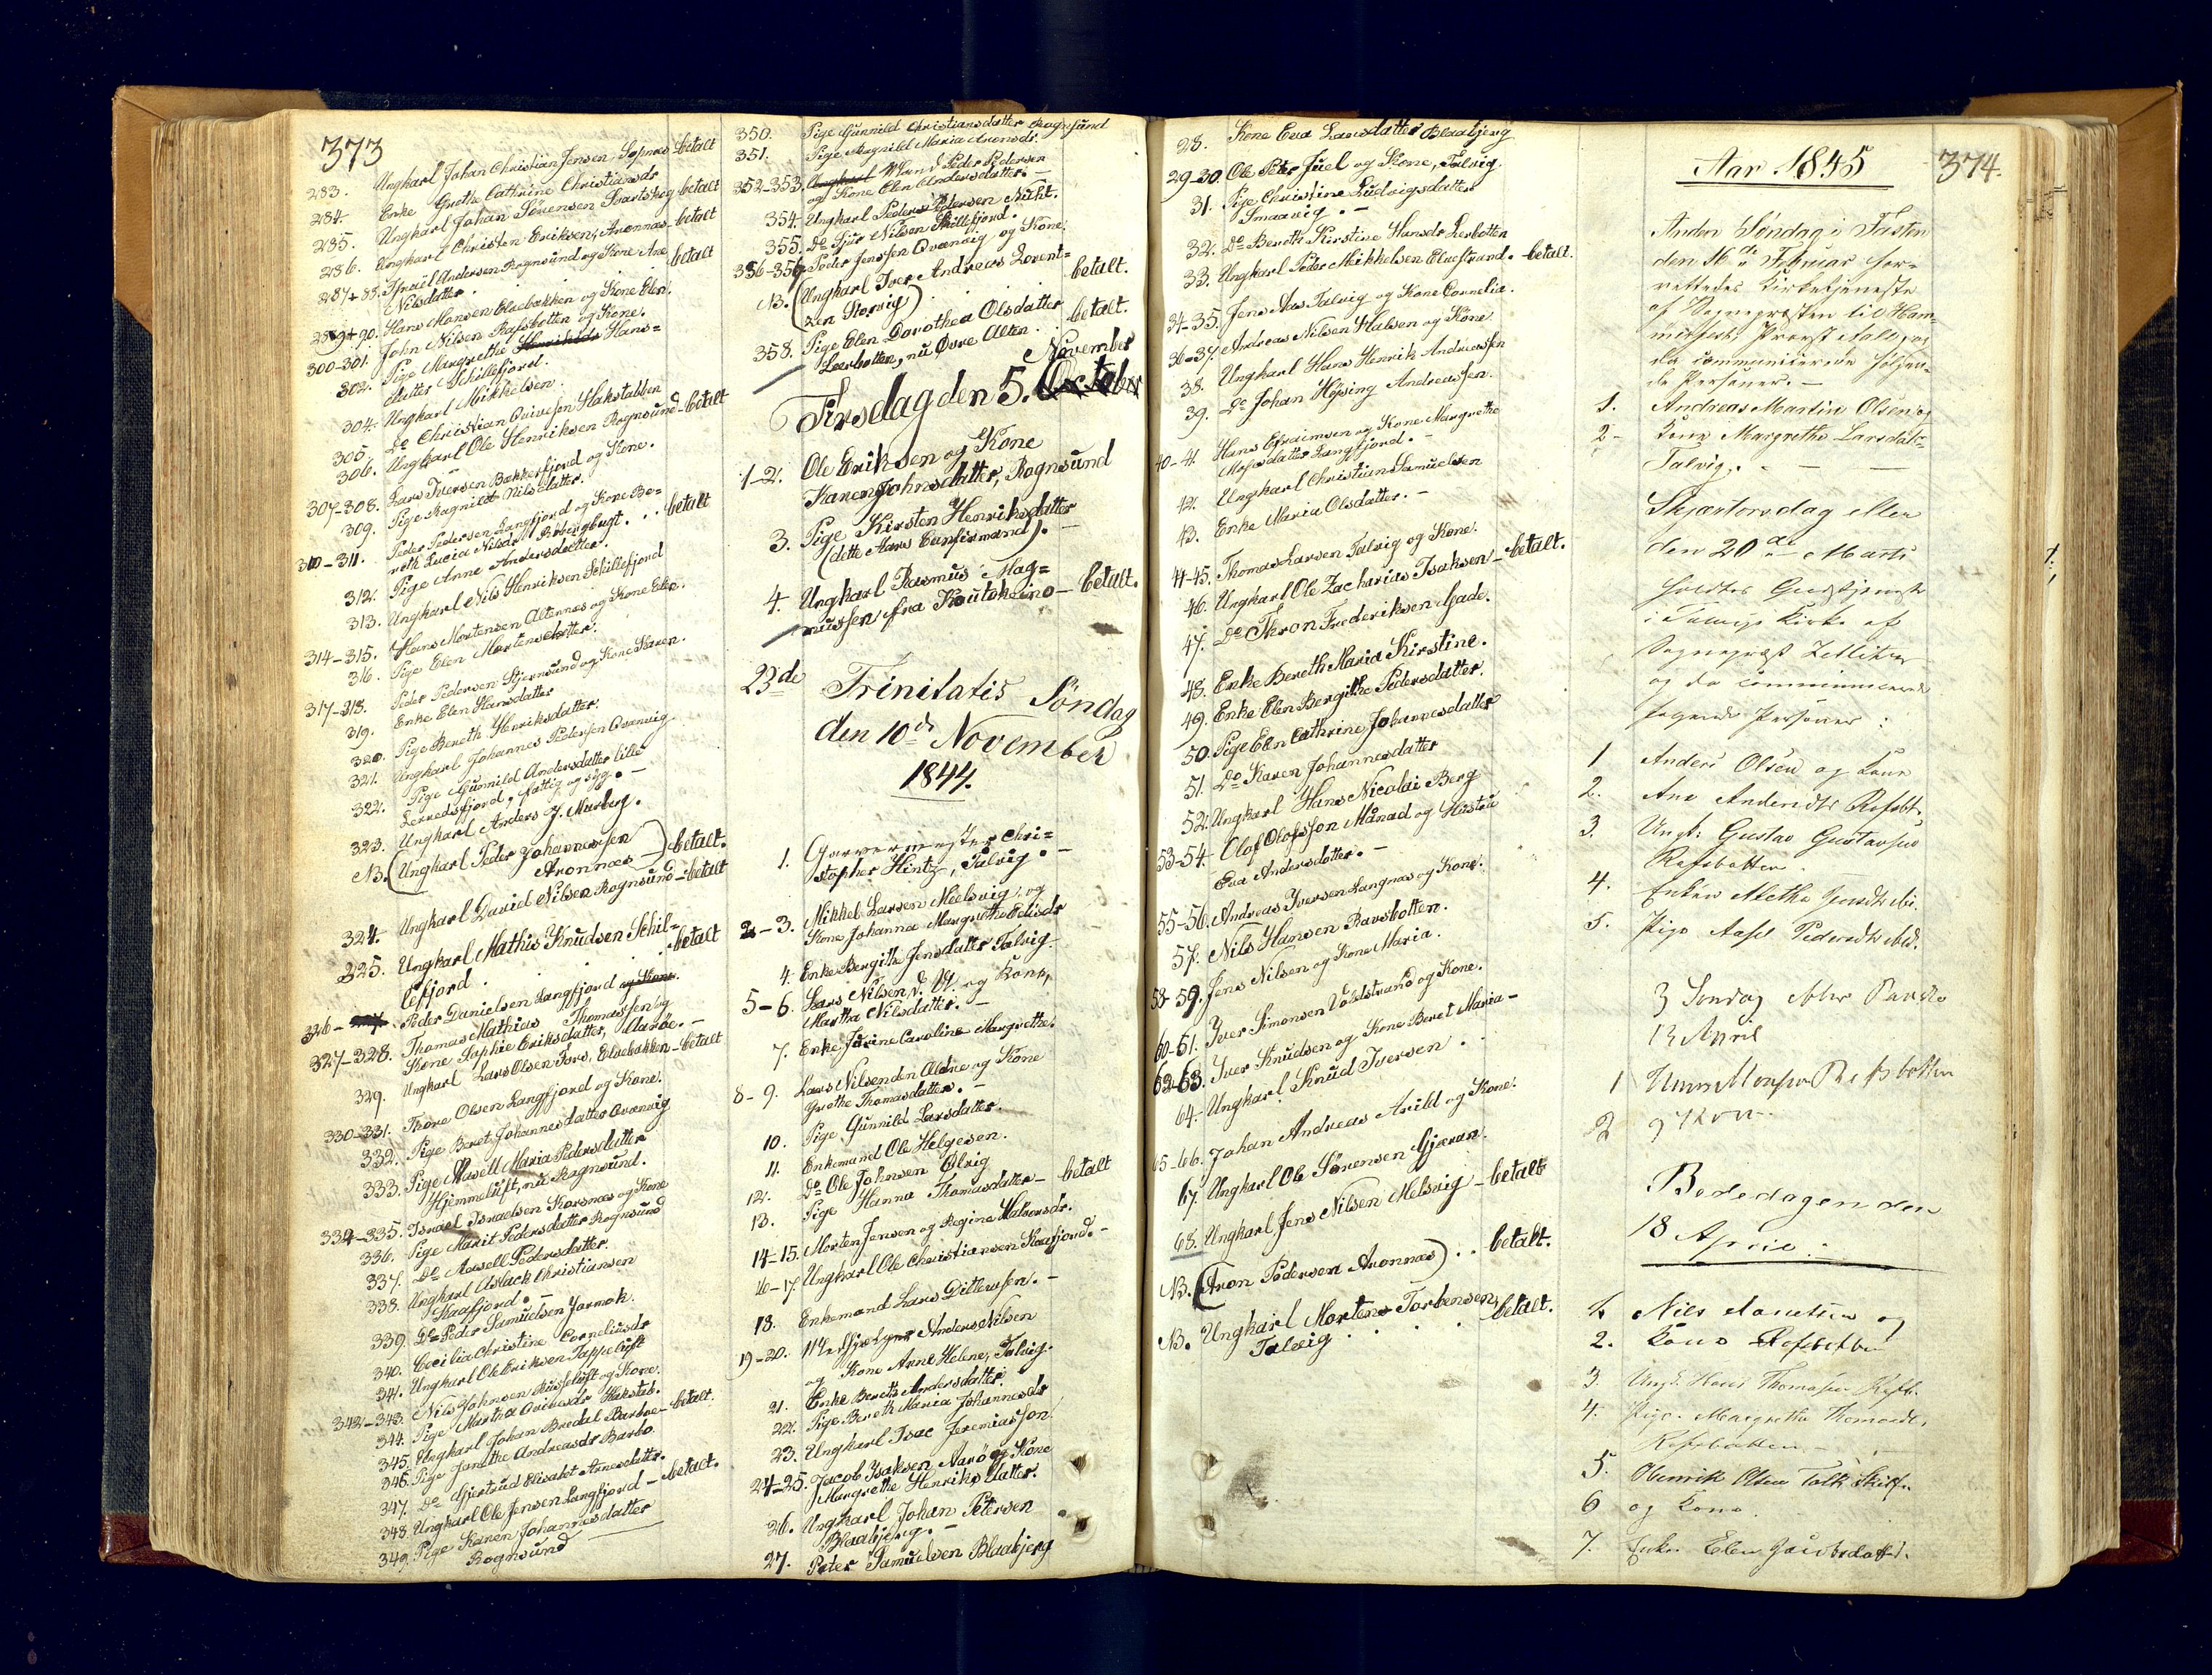 373
283. Ungkarl Johan Christian Jensen Sopnæs betalt
284. Enke Grethe Cathrine Christiansdr
285. Ungkarl Johan Sörensen Svartskog betalt
286. Ungkarl Christen Eriksen, Aronnæs betalt
287+88. Israël Andersen Rognsund og Kone Ane
Nilsdatter . . . betalt
289+90. Hans Monsen Elvebakken og Kone Elen.
300-301. John Nilsen Rafsbotten og Kone.
302. Pige Margrethe Henriksdr Hans=
datter Schillefjord.
304. Ungkarl Mikkelsen.
305. Do Christian Qvivesen Hakstabben
306. Ungkarl Ole Henriksen Rognsund - betalt
307-308. Lars Iversen Bækkerfjord og Kone.
309. Pige Ragnild Nilsdatter.
310-311. Peder Pedersen Langfjord og Kone Be=
reth Lucia Nilsdr
312. Pige Anne Andersdatter.
313. Ungkarl Nils Henriksen Schillefjord
314-315. Hans Mortensen Altennæs og Kone Elen.
316. Pige Elen Mortensdatter.
317-318. Peder Pedersen Stjernsund og Kone Karen.
319. Enke Elen Hansdatter
320. Pige Bereth Henriksdatter.
321. Ungkarl Johannes Pedersen Qvænvig
322. Pige Gunnild Andersdatter lille
Lerredsfjord, fattig og syg. -
323. Ungkarl Anders J. Nurberg.
NB. (Ungkarl Peder Johannessen
Aronnæs) - betalt.
324. Ungkarl David Nilsen Rognsund - betalt
325. Ungkarl Mathis Knudsen Schil=
lefjord . . . betalt
326- Peder Danielsen Langfjord og Kone.
327-328. Thomas Mathias Thomassen og
Kone Sophie Eriksdatter, Aarøe. -
329. Ungkarl Lars Olsen Fors, Elvebakken - betalt
330-331. Thore Olsen Langfjord og Kone.
332. Pige Beret Johannesdatter Qvænvig
333. Pige Masell Maria Pedersdatter
Hjemmeluft, nu Rognsund.
334-335. Israel Israelsen Korsnæs og Kone
336. Pige Marit Pedersdatter Rognsund
337. Do Masell Pedersdatter.
338. Ungkarl Aslack Christiansen
Kaafjord. -
339. Do Peder Samuelsen Jarmok.
340. Cecilia Christine Corneliusdr
341. Ungkarl Ole Eriksen Tappeluft
342-343. Nils Johnsen Russeluft og Kone.
344. Pige Martha Qvivesdr Hakstab.
345. Ungkarl Johan Bredal Barboe - betalt.
346. Pige Janethe Andreasdr Barbo.
347. Do Gjertrud Elisabet Arnesdatter.
348. Ungkarl Ole Jensen Langfjord - betalt.
349. Pige Karen Johannesdatter
Rognsund
350. Pige Gunnild Christiansdatter Rognsund
351. Pige Ragnild Maria Aronsdr.
352-353. Ungkarl Mand Peder Pedersen
og Kone Elen Andersdatter. -
354. Ungkarl Peder Pedersen Buht.
355. Do Sjur Nilsen Skillefjord.
356-357. Peder Jensen Qvænvig og Kone.
NB. (Ungkarl Iver Andreas Lorent=
zen Storvig) . . . betalt.
358. Pige Elen Dorothea Olsdatter
Leerbotten, nu Øvre Alten . . betalt.
November
Tirsdag den 5. October
1-2. Ole Eriksen og Kone
Karen Johnsdatter, Rognsund
3. Pige Kirsten Henriksdatter
(dette Aars Confirmand). -
4. Ungkarl Rasmus Mag=
nussen fra Koutokeino - betalt.
23de Trinitatis Söndag
den 10de November
1844.
1. Garvermester Chri=
stopher Hintz, Talvig. -
2-3. Mikkel Larsen Melsvig, og
Kone Johanna Margrethe Edisdr
4. Enke Bergithe Jensdatter Talvig.
5-6. Lars Nilsen d. Y. og Kone,
Martha Nilsdatter. -
7. Enke Jurine Caroline Margrethe.
8-9. Lars Nilsen den Aldre og Kone
Grethe Thomasdatter. -
10. Pige Gunnild Larsdatter.
11. Enkemand Ole Helgesen.
12. Do Ole Johnsen Ølvig
13. Pige Hanna Thomasdatter - betalt
14-15. Morten Jensen og Regine Halvorsdr.
16-17. Ungkarl Ole Christiansen Kaafjord. -
18. Enkemand Lars Ditlevsen. -
19-20. Anders Nilsen
og Kone Anne Helene, Talvig.
21. Enke Bereth Andersdatter.
22. Pige Bereth Maria Johannesdr
23. Ungkarl Isac Jeremiassen
24-25. Jacob Isaksen Aarö og Kone
Margrethe Henriksdatter.
26. Ungkarl Johan Petersen
Blaabjerg. -
27. Peter Samuelsen Blaabjerg
28. Kone Eva Larsdatter Blaabjerg
29-30. Ole Peter Juel og Kone, Talvig.
31. Pige Christine Ludvigsdatter
Smaavig. -
32. Do Bereth Kirstine Hansdr Leerbotten
33. Ungkarl Peder Mikkelsen Elvestrand. - betalt.
34-35. Jens Aas Talvig og Kone Cornelia.
36-37. Andreas Nilsen Halsen og Kone
38. Ungkarl Hans Henrik Andreassen
39. Do Johan Hysing Andreassen.
40-41. Hans Efraimsen og Kone Margrethe
Mosesdatter Langfjord. -
42. Ungkarl Christian Samuelsen
43. Enke Maria Olsdatter. -
44-45. Thomas Larsen Talvig og Kone.
46. Ungkarl Ole Zacharias Isaksen - betalt.
47. Do Thron Frederiksen Gade.
48. Enke Bereth Maria Kirstine.
49. Enke Elen Bergithe Pedersdatter.
50. Pige Elen Cathrine Johannesdatter
51. Do Karen Johannesdatter
52. Ungkarl Hans Nicolai Berg
53-54. Olof Olofsson Månad og Hustru
Eva Andersdotter. -
55-56. Andreas Iversen Langnæs og Kone.
57. Nils Hansen Ravsbotten.
58-59. Jens Nilsen og Kone Maria.
60-61. Iver Simonsen Voldstrand og Kone.
62-63. Iver Knudsen og Kone Beret Maria -
64. Ungkarl Knud Iversen . .
65-66. Johan Andreas Arild og Kone.
67. Ungkarl Ole Sörensen Gjæran.
68. Ungkarl Jens Nilsen Melsvig - betalt
NB. (Aron Pedersen Aronnæs) . . betalt.
NB. Ungkarl Morten Torbensen,
Talvig . . . . betalt.
Aar 1845 374.
Anden Söndag i Fasten
den 16de Februar for=
rettedes Kirketjeneste
af Sognepræsten til Ham=
merfest, Provst Aall, og
da communicerede følgen=
de Personer. -
1. Andreas Martin Olsen og
2- Kone Margrethe Larsdatr
Talvig. - - -
Skjærtorsdag eller
den 20de Marts
holdtes Gudstjeneste
i Talvigs Kirke af
Sognepræst Zetlitz
og da communicerede
følgende Personer :
1 Anders Olsen og Kone
2. Ane Andersdtr Rafsbt.
3. Ungk: Gustav Gustavsen
Rafsbotten.
4. Enken Alethe
5. Pige
3 Söndag efter Paaske
13 April
1 Rafsbotten
2 og Kone
Bededagen den
18 April.
1. Nils og
2. Kone Rafsbotten
3 Ungk. Hans Thomasen Rafsb.
4. Pige. Margrethe Thomasdtr.
Rafsbotten. -
5. Henrik Olsen
6 og Kone.
7. Enke Elen